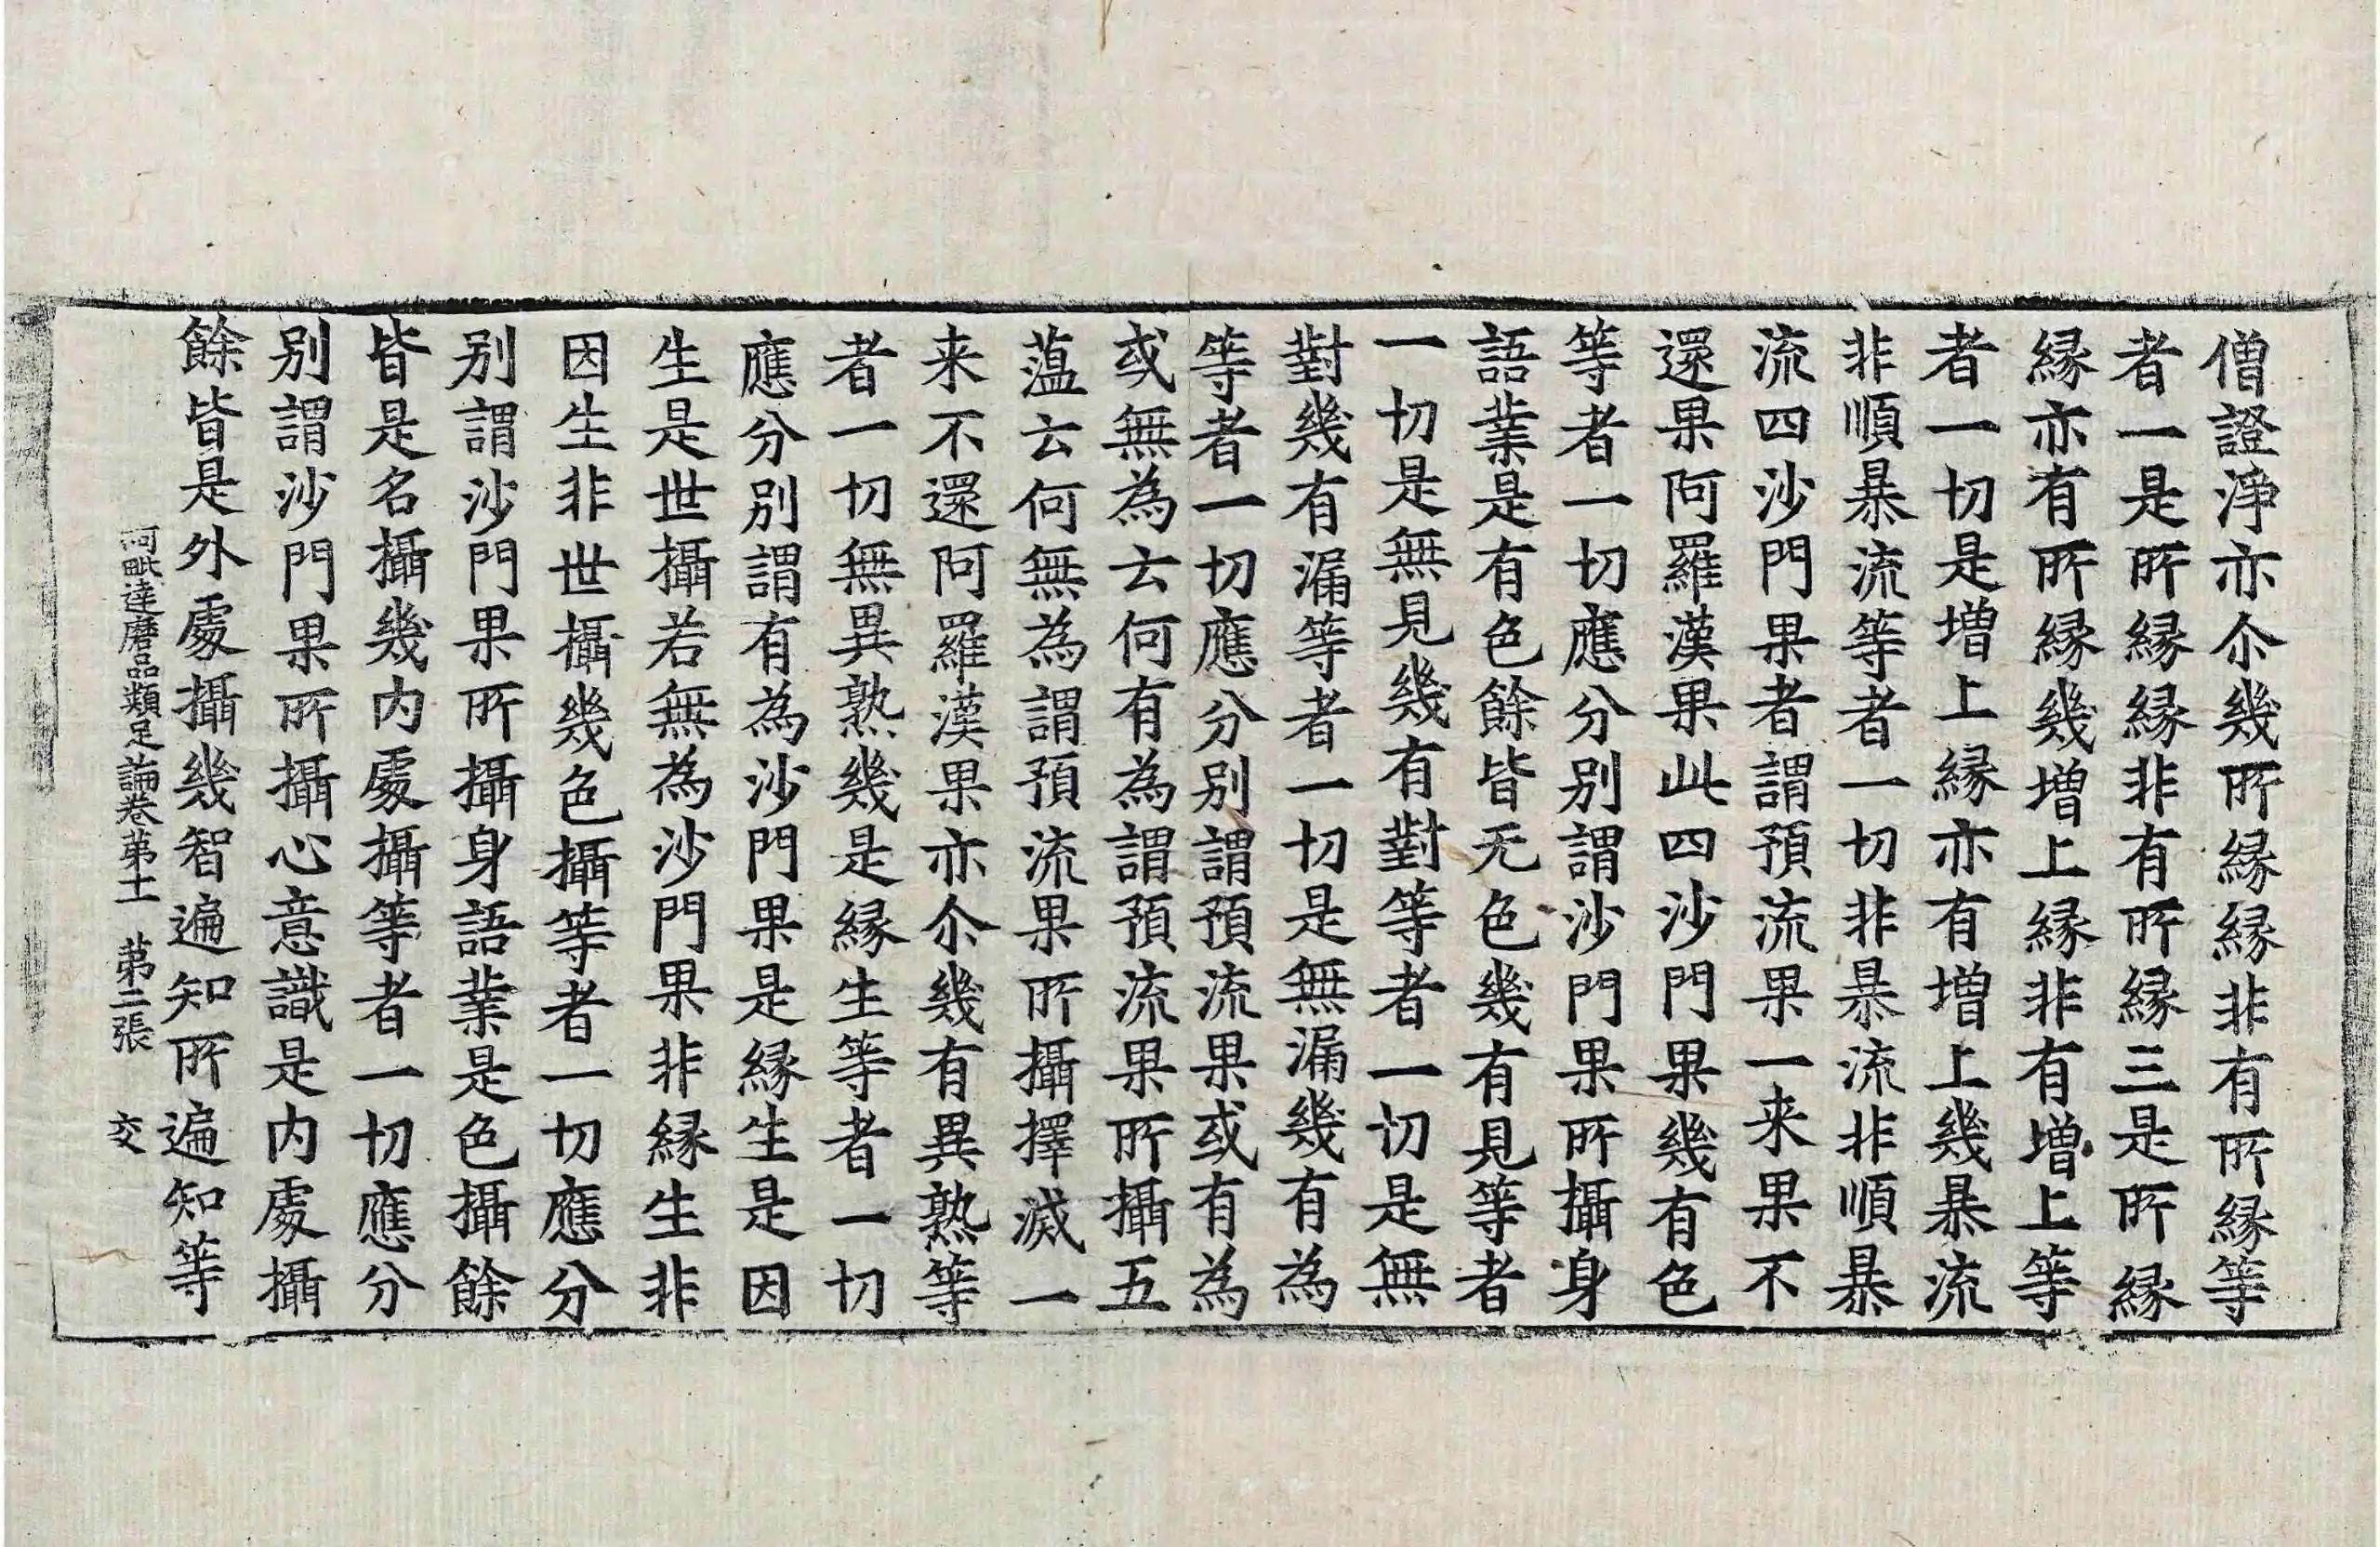 僧證淨亦尒幾所緣緣非有所緣等
者一是所緣緣非有所緣三是所緣
緣亦有所緣幾增上緣非有增上等
者一切是增上緣亦有增上幾暴流
非順暴流等者一切非暴流非順暴
流四沙門果者謂預流果一来果不
還果阿羅漢果此四沙門果幾有色
等者一切應分別謂沙門果所攝身
語業是有色餘皆无色幾有見等者
一切是無見幾有對等者一切是無
對幾有漏等者一切是無漏幾有為
等者一切應分別謂預流果或有為
或無為云何有為謂預流果所攝五
蘊云何無為謂預流果所攝擇滅一
来不還阿羅漢果亦尒幾有異熟等
者一切無異熟幾是緣生等者一切
應分別謂有為沙門果是緣生是因
生是世攝若無為沙門果非緣生非
因生非世攝幾色攝等者一切應分
別謂沙門果所攝身語業是色攝餘
皆是名攝幾內處攝等者一切應分
別謂沙門果所攝心意識是內處攝
餘皆是外處攝幾智遍知所遍知等
阿毗達磨品類足論卷苐十一 苐二張 交